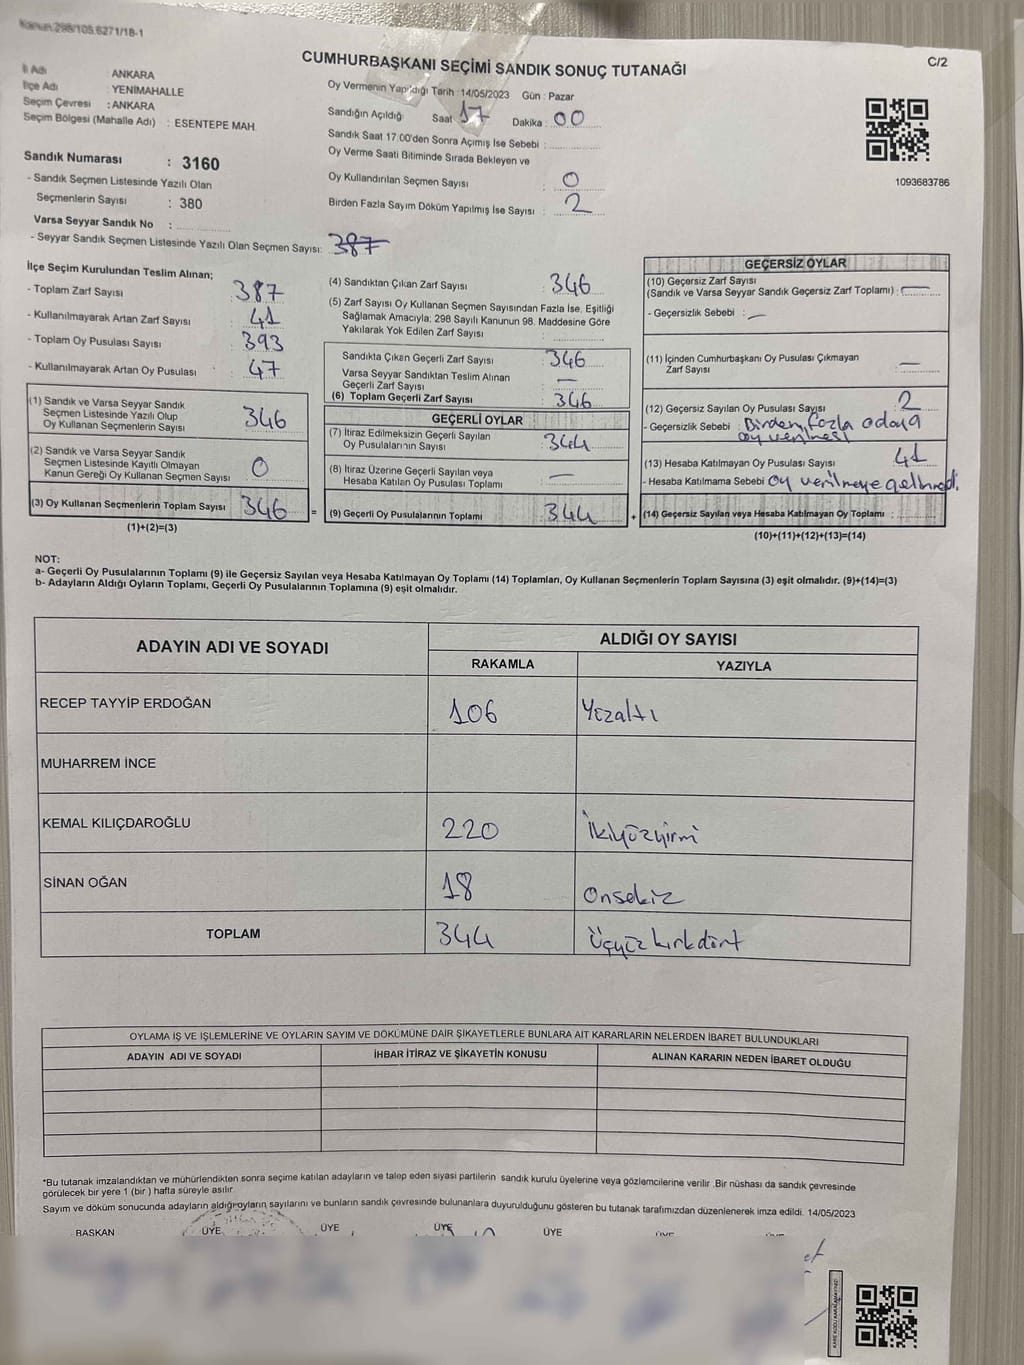 Kanun:298/105,6271/18-1
C/2
CUMHURBAŞKANI SEÇİMİ SANDIK SONUÇ TUTANAĞI
İl Adı : ANKARA
İlçe Adı : YENİMAHALLE
Seçim Çevresi : ANKARA
Seçim Bölgesi (Mahalle Adı) : ESENTEPE MAH.
Oy Vermenin Yapıldığı Tarih : 14/05/2023 Gün : Pazar
Sandığın Açıldığı Saat 17 Dakika : 00
Sandık Saat 17.00'den Sonra Açımış İse Sebebi :
Oy Verme Saati Bitiminde Sırada Bekleyen ve
Oy Kullandırılan Seçmen Sayısı : 0
Birden Fazla Sayım Döküm Yapılmış İse Sayısı : 2
1093683786
Sandık Numarası : 3160
- Sandık Seçmen Listesinde Yazılı Olan
Seçmenlerin Sayısı : 380
Varsa Seyyar Sandık No :
- Seyyar Sandık Seçmen Listesinde Yazılı Olan Seçmen Sayısı: 387
İlçe Seçim Kurulundan Teslim Alınan;
- Toplam Zarf Sayısı 387
- Kullanılmayarak Artan Zarf Sayısı : 41
- Toplam Oy Pusulası Sayısı : 393
- Kullanılmayarak Artan Oy Pusulası : 47
(1) Sandık ve Varsa Seyyar Sandık
Seçmen Listesinde Yazılı Olup
Oy Kullanan Seçmenlerin Sayısı 346
(2) Sandık ve Varsa Seyyar Sandık
Seçmen Listesinde Kayıtlı Olmayan
Kanun Gereği Oy Kullanan Seçmen Sayısı : 0
(3) Oy Kullanan Seçmenlerin Toplam Sayısı 346 =
(1)+(2)=(3)
(4) Sandıktan Çıkan Zarf Sayısı : 346
(5) Zarf Sayısı Oy Kullanan Seçmen Sayısından Fazla İse, Eşitliği
Sağlamak Amacıyla; 298 Sayılı Kanunun 98. Maddesine Göre
Yakılarak Yok Edilen Zarf Sayısı :
Sandıkta Çıkan Geçerli Zarf Sayısı : 346
Varsa Seyyar Sandıktan Teslim Alınan
Geçerli Zarf Sayısı : —
(6) Toplam Geçerli Zarf Sayısı : 346
GEÇERLİ OYLAR
(7) İtiraz Edilmeksizin Geçerli Sayılan
Oy Pusulalarının Sayısı : 344
(8) İtiraz Üzerine Geçerli Sayılan veya
Hesaba Katılan Oy Pusulası Toplamı : —
(9) Geçerli Oy Pusulalarının Toplamı : 344 +
GEÇERSİZ OYLAR
(10) Geçersiz Zarf Sayısı
(Sandık ve Varsa Seyyar Sandık Geçersiz Zarf Toplamı) : —
- Geçersizlik Sebebi : —
(11) İçinden Cumhurbaşkanı Oy Pusulası Çıkmayan
Zarf Sayısı : —
(12) Geçersiz Sayılan Oy Pusulası Sayısı : 2
- Geçersizlik Sebebi : Birden fazla adaya
oy verilmesi
(13) Hesaba Katılmayan Oy Pusulası Sayısı : 41
- Hesaba Katılmama Sebebi : oy verilmeye gelinmedi.
(14) Geçersiz Sayılan veya Hesaba Katılmayan Oy Toplamı :
(10)+(11)+(12)+(13)=(14)
NOT:
a- Geçerli Oy Pusulalarının Toplamı (9) ile Geçersiz Sayılan veya Hesaba Katılmayan Oy Toplamı (14) Toplamları, Oy Kullanan Seçmenlerin Toplam Sayısına (3) eşit olmalıdır. (9)+(14)=(3)
b- Adayların Aldığı Oyların Toplamı, Geçerli Oy Pusulalarının Toplamına (9) eşit olmalıdır.
ADAYIN ADI VE SOYADI
ALDIĞI OY SAYISI
RAKAMLA YAZIYLA
RECEP TAYYİP ERDOĞAN 106 Yüzaltı
MUHARREM İNCE
KEMAL KILIÇDAROĞLU 220 İkiyüzyirmi
SİNAN OĞAN 18 Onsekiz
TOPLAM 344 Üçyüzkırkdört
OYLAMA İŞ VE İŞLEMLERİNE VE OYLARIN SAYIM VE DÖKÜMÜNE DAİR ŞİKAYETLERLE BUNLARA AİT KARARLARIN NELERDEN İBARET BULUNDUKLARI
ADAYIN ADI VE SOYADI İHBAR İTİRAZ VE ŞİKAYETİN KONUSU ALINAN KARARIN NEDEN İBARET OLDUĞU
*Bu tutanak imzalandıktan ve mühürlendikten sonra seçime katılan adayların ve talep eden siyasi partilerin sandık kurulu üyelerine veya gözlemcilerine verilir .Bir nüshası da sandık çevresinde
görülecek bir yere 1 (bir ) hafta süreyle asılır.
Sayım ve döküm sonucunda adayların aldığı oyların sayılarını ve bunların sandık çevresinde bulunanlara duyurulduğunu gösteren bu tutanak tarafımızdan düzenlenerek imza edildi. 14/05/2023
BAŞKAN ÜYE ÜYE ÜYE ÜYE ÜYE